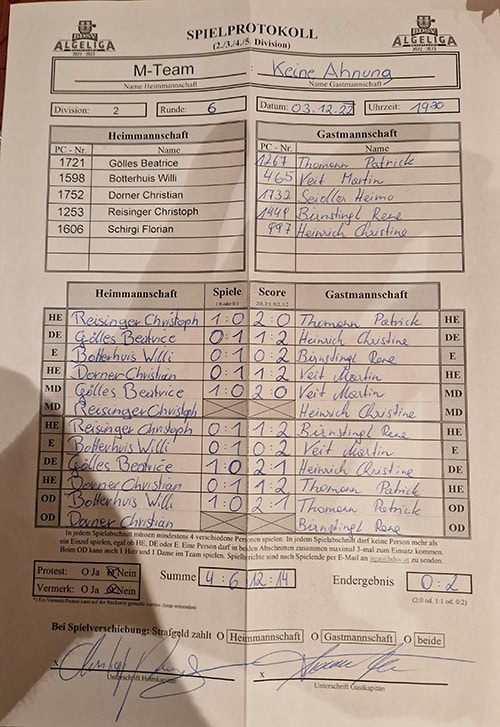 ALGELIGA 2022-2023 SPIELPROTOKOLL ALGELIGA 2022-2023
(2./3./4./5. Division)
M-Team : Keine Ahnung
Name Heimmannschaft Name Gastmannschaft
Division: 2 Runde: 6 Datum: 03.12.22 Uhrzeit: 1930
Heimmannschaft Gastmannschaft
PC - Nr. Name PC - Nr. Name
1721 Gölles Beatrice 1267 Thomann Patrick
1598 Botterhuis Willi 465 Veit Martin
1752 Dorner Christian 1732 Seidler Heimo
1253 Reisinger Christoph 1449 Birnstingl Rene
1606 Schirgi Florian 997 Heinrich Christine
Heimmannschaft Spiele Score Gastmannschaft
1:0 oder 0:1 2:0, 2:1, 0:2, 1:2
HE Reisinger Christoph 1:0 2:0 Thomann Patrick HE
DE Gölles Beatrice 0:1 1:2 Heinrich Christine DE
E Botterhuis Willi 0:1 0:2 Birnstingl Rene E
HE Dorner Christian 0:1 1:2 Veit Martin HE
MD Gölles Beatrice 1:0 2:0 Veit Martin MD
MD Reisinger Christoph Heinrich Christine MD
HE Reisinger Christoph 0:1 1:2 Birnstingl Rene HE
E Botterhuis Willi 0:1 0:2 Veit Martin E
DE Gölles Beatrice 1:0 2:1 Heinrich Christine DE
HE Dorner Christian 0:1 1:2 Thomann Patrick HE
OD Botterhuis Willi 1:0 2:1 Thomann Patrick OD
OD Dorner Christian Birnstingl Rene OD
In jedem Spielabschnitt müssen mindestens 4 verschiedene Personen spielen. In jedem Spielabschnitt darf keine Person mehr als
ein Einzel spielen, egal ob HE, DE oder E. Eine Person darf in beiden Abschnitten zusammen maximal 3-mal zum Einsatz kommen.
Beim OD kann auch 1 Herr und 1 Dame im Team spielen. Spielberichte sind nach Spielende per E-Mail an zu senden.
Protest: O Ja O Nein Summe 4:6 12:14 Endergebnis 0:2
Vermerk: O Ja O Nein (2:0 od. 1:1 od. 0:2)
Bei Spielverschiebung: Strafgeld zahlt O Heimmannschaft O Gastmannschaft O beide
x x
Unterschrift Heimkapitän Unterschrift Gastkapitän